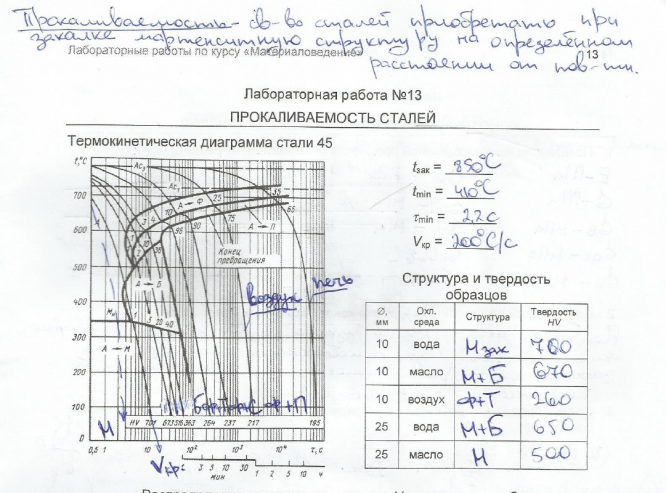 Прокаливаемость - св-во сталей приобретать при
закалке мартенситную структуру на определённом
расстоянии от пов-ти.
Лабораторные работы по курсу «Материаловедение»
13
Лабораторная работа №13
ПРОКАЛИВАЕМОСТЬ СТАЛЕЙ
Термокинетическая диаграмма стали 45
t,°C
700
600
500
400
300
200
100
0
Ac₃
Ac₁
A → Ф
A → П
A → Б
A → М
Mн
Конец
превращения
воздух
печь
М
Vкр
Ф+П
HV 701
254 237 217 185
0,5 1 10 10² 10³ 10⁴ τ, с
1 2 3 5 10 30
мин
1 2 4
ч
tзак = 850°C
tmin = 410°C
τmin = 2,2с
Vкр = 200°C/с
Структура и твердость
образцов
Ø, мм Охл. среда Структура Твердость HV
10 вода Мзак 700
10 масло М+Б 670
10 воздух Ф+Т 260
25 вода М+Б 650
25 масло М 500